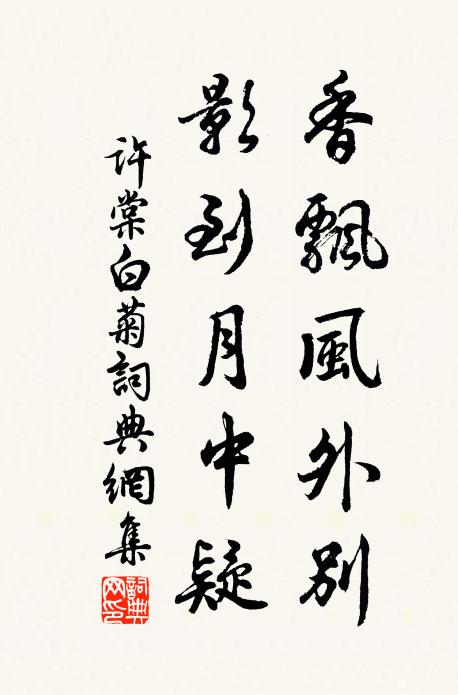 香飄風外別
影到月中疑
許棠白菊詞典網集
詞典网印